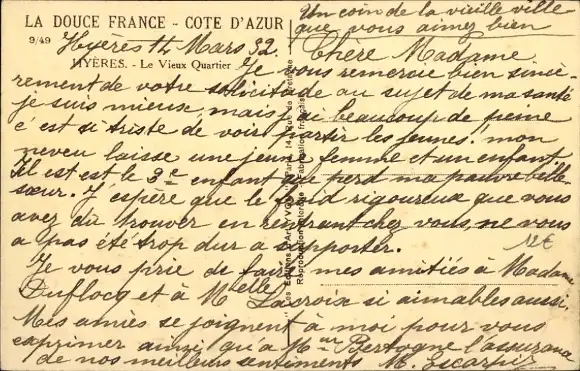 LA DOUCE FRANCE - COTE D'AZUR
Un coin de la vieille ville
que vous aimez bien
9/49
Hyères 14 Mars 32.
HYÈRES. - Le Vieux Quartier
Chere Madame
Je vous remercie bien sincè-
rement de votre solicitude au sujet de ma santé
je suis mieux, mais j'ai beaucoup de peine
c'est si triste de voir partir les jeunes! mon
neveu laisse une jeune femme et un enfant.
Il est est le 3e enfant que perd ma pauvre belle-
sœur. J'espère que le froid rigoureux que vous
avez dû trouver en rentrant chez vous, ne vous
a pas été trop dur a supporter.
Je vous prie de faire mes amitiés à Madame
Duflocq et à Melle Lacroix si aimables aussi.
Mes amies se joignent à moi pour vous
exprimer ainsi qu'a Mme Bertogne l'assurance
de nos meilleurs sentiments M. Escarpis
Reproduction interdite - Fabrication française